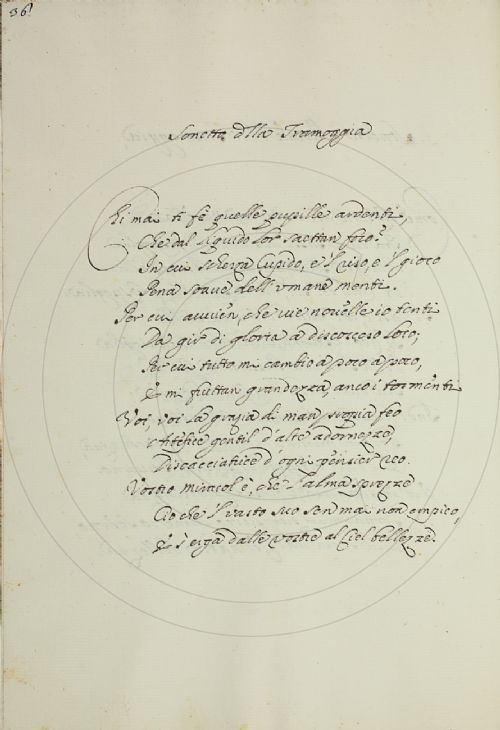 36
Sonetto della Tramoggia
Chi mai ti fè quelle pupille ardenti,
Che dal liquido lor saettan foco?
In cui scherza Cupido, e'l riso, e'l gioco
Pena soave dell'umane menti.
Per cui avvien, che vie novelle io tenti
Da gir di gloria a discosceso loco;
Per cui tutto mi cambio a poco a poco,
E mi fruttan grandezza, anco i tormenti
Voi, voi la grazia di man, feo
Artefice gentil d'alte adornezze,
Discacciatrice d'ogni pensier reo.
Vostro miracol'è, che l'alma sprezze
Ciò che'l vasto suo sen mai non empieo,
E s'erga dalle vostre al Ciel bellezze.